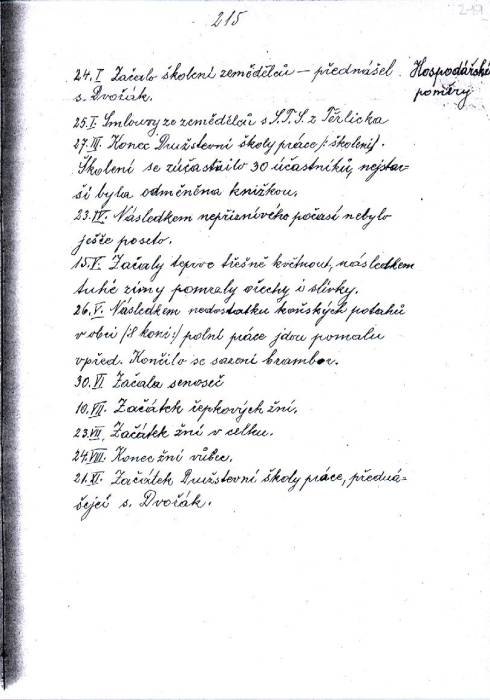 215
219
24.I Začalo školení zemědělců — přednášel
s. Dvořák.
Hospodářské
poměry
25.I. Smlouvy ze zemědělců s S.T.S. z Těrlicka
27.III. Konec Družstevní školy práce /: školení/.
Školení se zúčastnilo 30 účastníků, nejstar-
ší byla odměněna knížkou.
23.IV. Následkem nepříznivého počasí nebylo
ješče poseto.
15.V. Začaly teprve třešně květnout, následkem
tuhé zimy pomrzly ořechy i slívky.
26.V. Následkem nedostatku koňských potahů
v obci /8 koní:/ polní práce jdou pomalu
vpřed. Končilo se sazení brambor.
30.VI Začala senoseč
10.VII. Začátek řepkových žní.
23.VII. Začátek žní v celku.
24.VIII. Konec žní vůbec.
21.XI. Začátek Družstevní školy práce, předná-
šející s. Dvořák.